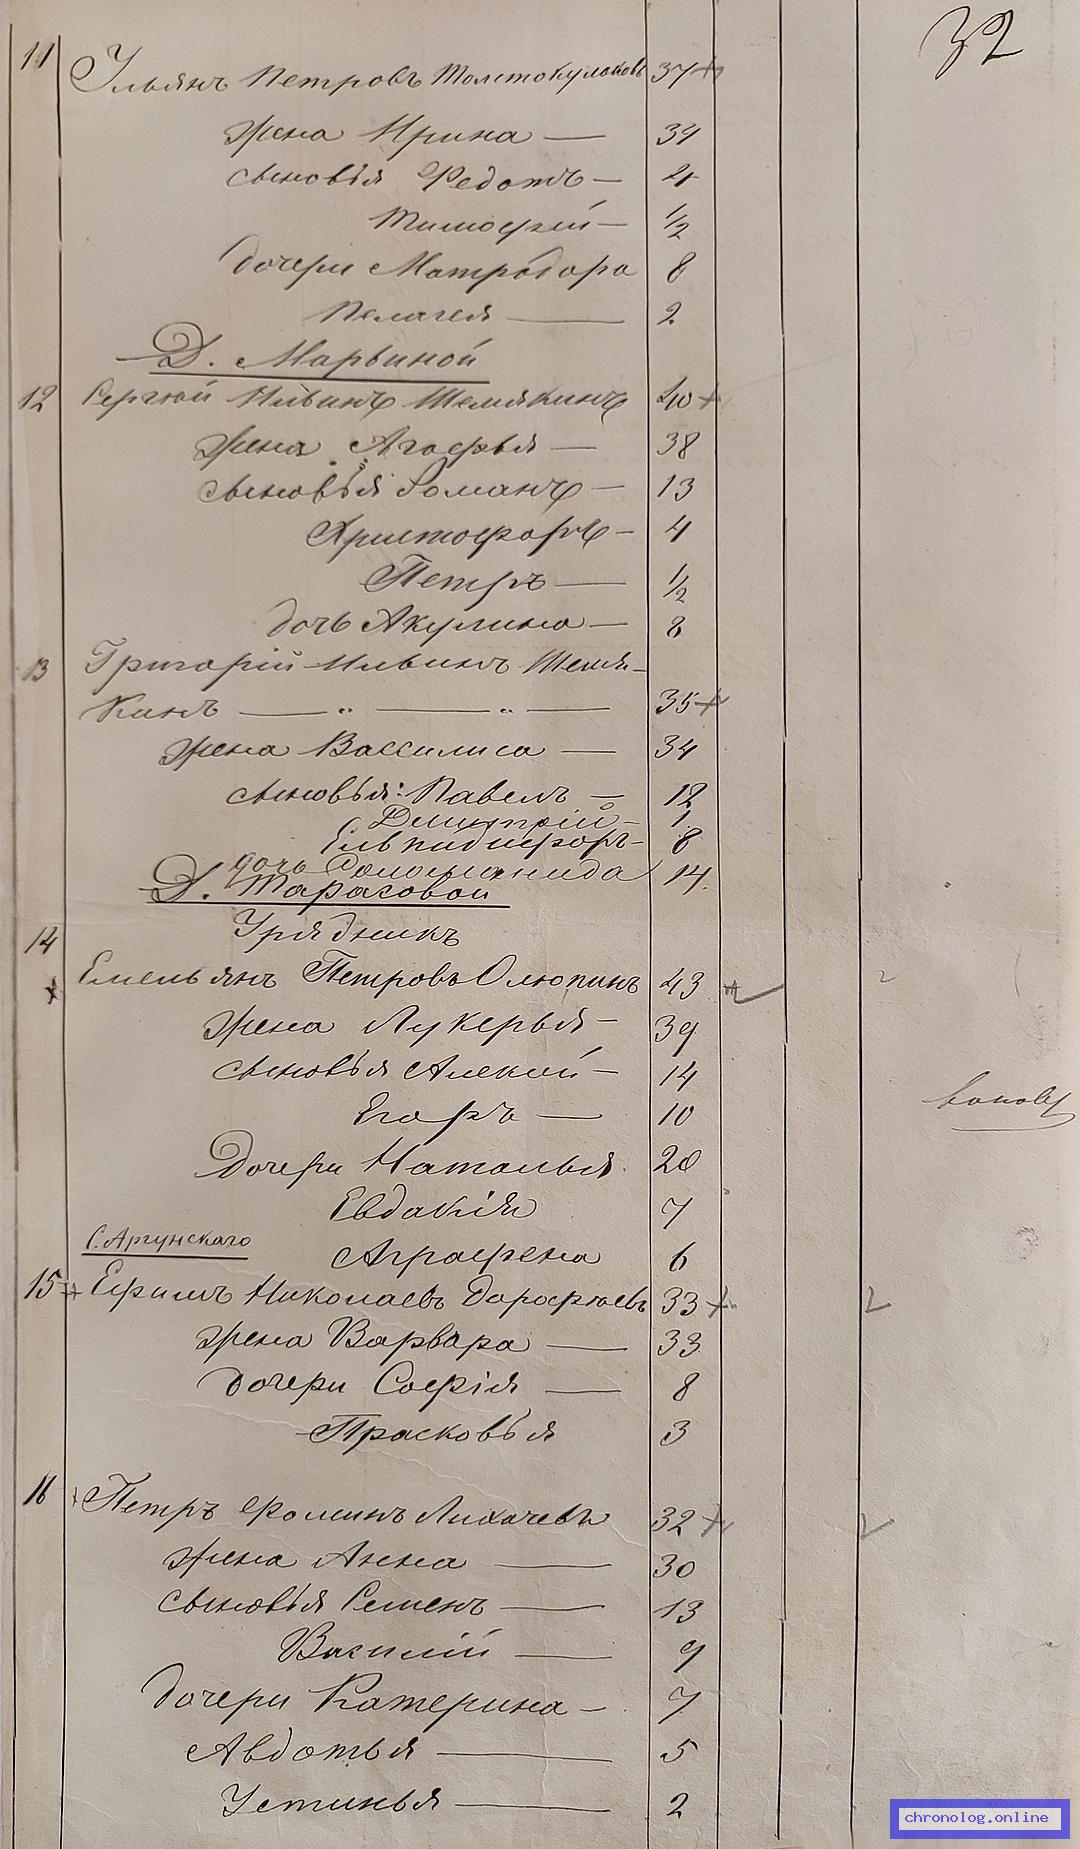 32
11 Ульянъ Петровъ Толстокулаковъ 37
жена Ирина — 34
сыновья Федотъ — 4
Тимофей — 1/2
дочери Матродора 8
Пелагея — 2
Д. Марьиной
12 Сергѣй Ильинъ Шемякинъ 40
жена Агафья — 38
сыновья Романъ — 13
Христофоръ — 4
Петръ — 1/2
дочь Акулина — 8
13 Григорій Ильинъ Шемя-
кинъ — „ — „ — 35
жена Вассилиса — 34
сыновья: Павелъ — 12
Дмитрій — 1
Елпидифоръ — 8
дочь Соломанида 14.
Д. Тарасовой
Урядникъ
14 Емельянъ Петровъ Олюпинъ 43
жена Лукерья — 39
сыновья Алексѣй — 14
Егоръ — 10
Дочери Наталья 20
Евдакія 7
С. Аргунскаго
Аграфена 6
15 Ефимъ Николаевъ Дорофѣевъ 33
жена Варвара — 33
дочери Софія — 8
Прасковья 3
16 Петръ Фоминъ Лихачевъ 32
жена Анна — 30
сыновья Семенъ — 13
Василій — 9
дочери Катерина — 7
Авдотья — 5
Устинья — 2
chronolog.online